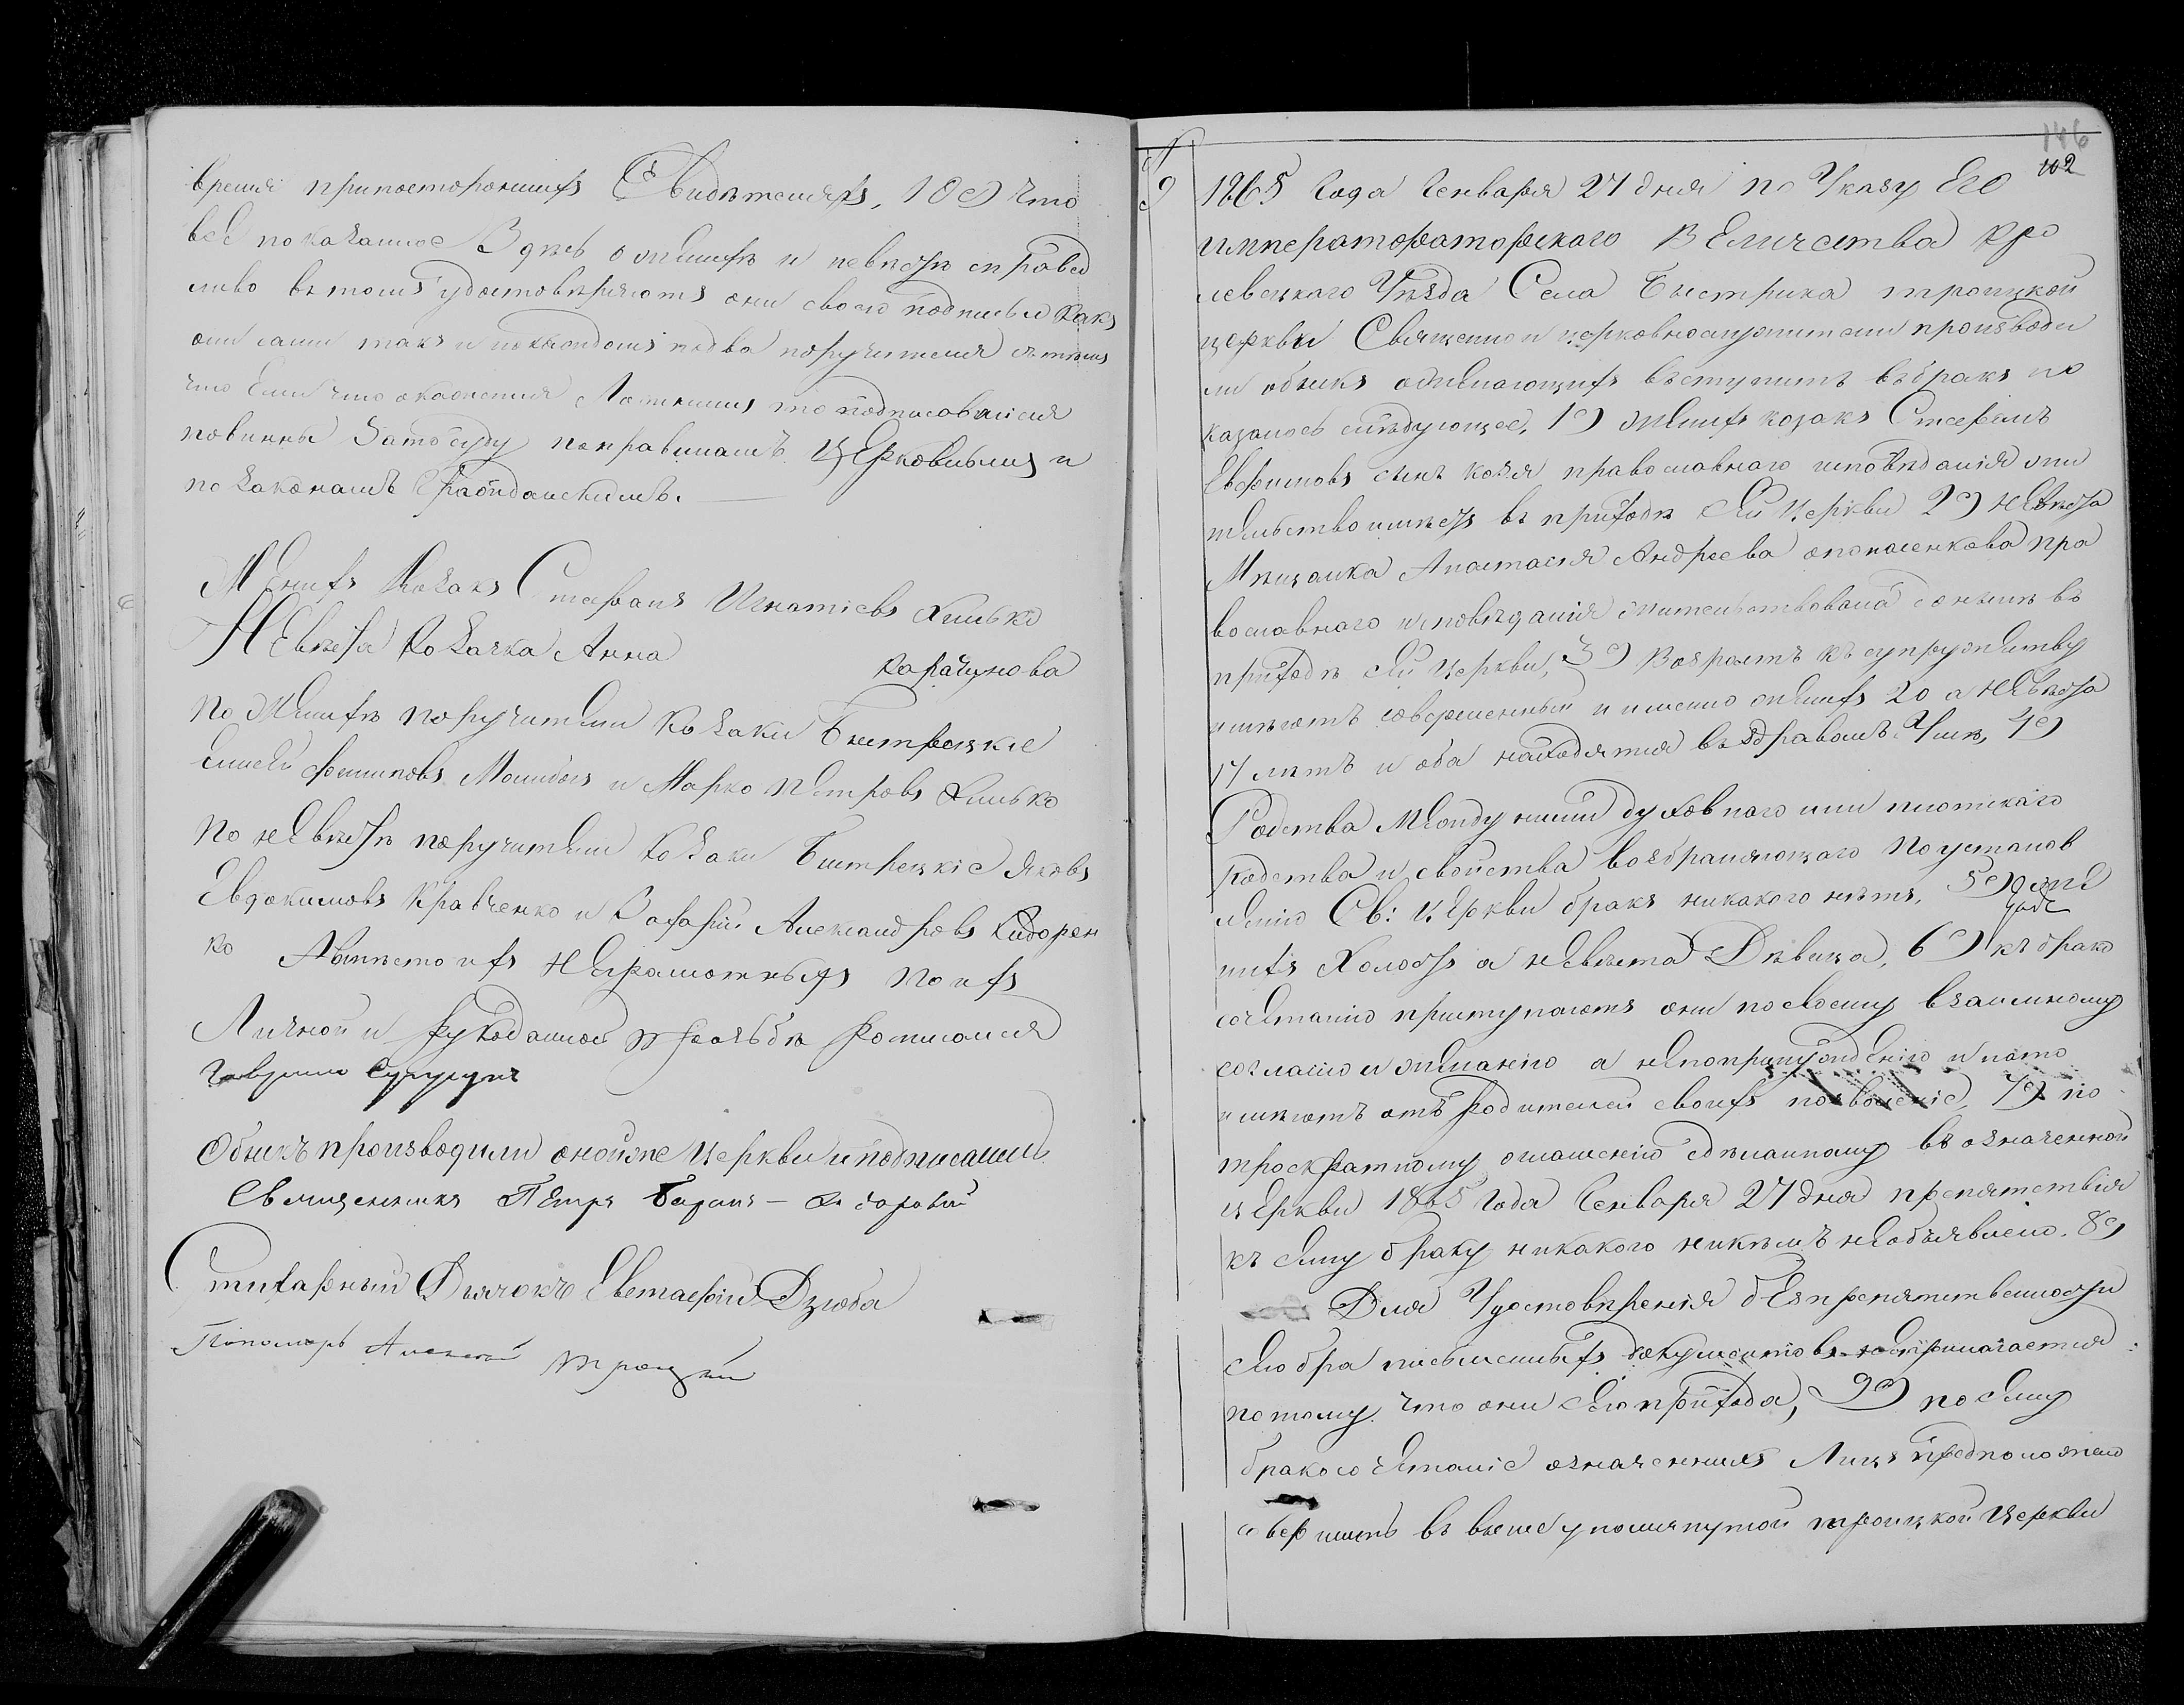 время припосторонныхъ Свидѣтеляхъ, 10е) что
всё показанное Здѣсь о женихѣ и невѣстѣ справед
ливо въ томъ удостовѣряютъ они своею подписью какъ
они сами такъ и по каждомъ подва поручителя съ тѣмъ
что Если что окажется Ложнымъ то подписавшіеся
повинны Зато суду по правиламъ Церковнымъ и
по законамъ Гражданскимъ.
Женихъ Козакъ Стефанъ Игнатіевъ Хилько
НЕвѣста Козачка Анна
Карачунова
По Женихѣ поручители Козаки Быстрецкіе
Филиповъ и Марко Петровъ Хилько
По нЕвѣстѣ поручители Козаки Быстрецкіе Яковъ
Евдокимовъ Кравченко и Захарій Александровъ Сидорен
ко Авмѣсто ихъ нЕграмотныхъ по ихъ
Личной и рукоданной прозьбѣ росписался
Обыскъ производили оной же Церкви и подписались
Священникъ Пётръ
Стихарный Дьячокъ Евстафій Дзюба
Пономарь Алексей Троцкій
146
102
9
1865 года Генваря 27 дня по Указу Его
императораторскаго ВЕличества кро
левецкаго Уѣзда Села Быстрика троицкой
церкви Священно и церковнослужители производи
ли обыскъ о желающихъ вступить въ бракъ по
казалось слѣдующее, 1е) женихъ козакъ Стефанъ
Евфимовъ сынъ козя православнаго исповѣданія жи
тельство имѣетъ въ приходѣ сей Церкви 2е) нЕвѣста
Мѣщанка Анастасія Андреева опонасенкова пра
вославнаго исповѣданія жительствовала донынѣ въ
приходѣ сей Церкви, 3е) Возрастъ къ супружеству
имѣютъ совершенный и именно женихъ 20 а нЕвѣста
17 лѣтъ и оба находятся въ здравомъ Умѣ, 4е)
Родства МЕжду ними духовнаго или плотскаго
родства и свойства возбраняющаго по установ
лЕнію Св: Церкви бракъ никакого нѣтъ, 5е) же
нихъ Холостъ а нЕвѣста Дѣвица, 6е) къ брако
сочЕтанію приступаютъ они по своему взаимному
согласію и жЕланію а нЕ по принуждЕнію и нато
имѣютъ отъ родителей своихъ позволеніе, 7е) по
троекратному оглашенію сдѣланному въ означенной
цЕркви 1865 года Генваря 27 дня препятствія
къ сЕму браку никакого никѣмъ нЕобъявлено. 8е)
Для Удостовѣренія бЕзпрепятственности
сЕго бра письменныхъ документовъ нЕприлагается
потому что они сЕго прихода, 9е) по сЕму
бракосочЕтаніе означенныхъ Лицъ предположено
совершить въ вышеупомянутой троицкой Церкви